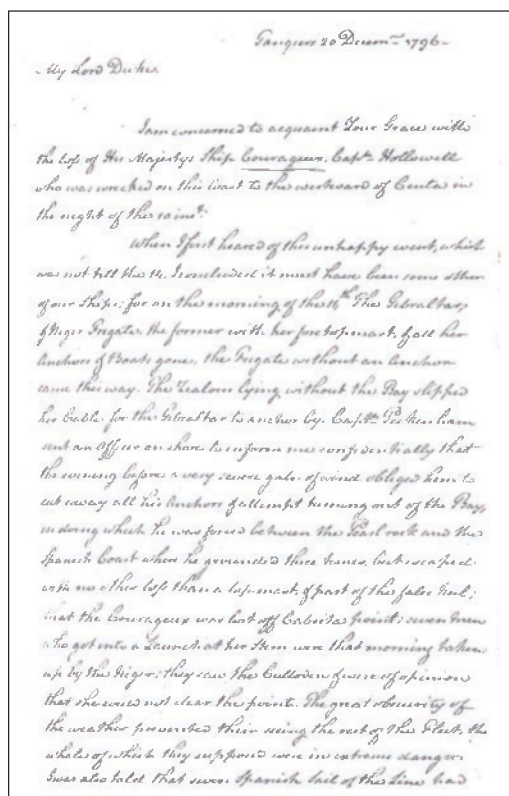 Tangiers 20 Decem.^ 1796 -
My Lord Duke,
I am concerned to acquaint Your Grace with
the loss of His Majestys Ship Courageux, Capt.n Hollowell
who was wrecked on this Coast to the westward of Ceuta in
the night of the 10 inst.t
When I first heard of this unhappy event, which
was not till the 14. I concluded it must have been some other
of our Ships; for on the morning of the 11th The Gibraltar,
& Niger Frigate, the former with her fore topmast, & all her
Anchors & Boats gone, the Frigate without an Anchor
came this way. The Zealous lying without the Bay slipped
her Cable for the Gibraltar to anchor by. Capt.n Pakenham
sent an Officer on shore to inform me confidentially that
the evening before a very severe gale of wind obliged him to
cut away all his Anchors & attempt turning out of the Bay,
in doing which he was forced between the Pearl rock and the
Spanish Coast where he grounded three times, but escaped
with no other loss than a topmast & part of the false keel;
that the Courageux was lost off Cabrita point: seven men
who got into a Launch at her Stern were that morning taken
up by the Niger; they saw the Culloden & were of opinion
that she could not clear the point. The great obscurity of
the weather prevented their seeing the rest of the Fleet, the
whole of which they supposed were in extreme danger
I was also told that seven Spanish sail of the Line had